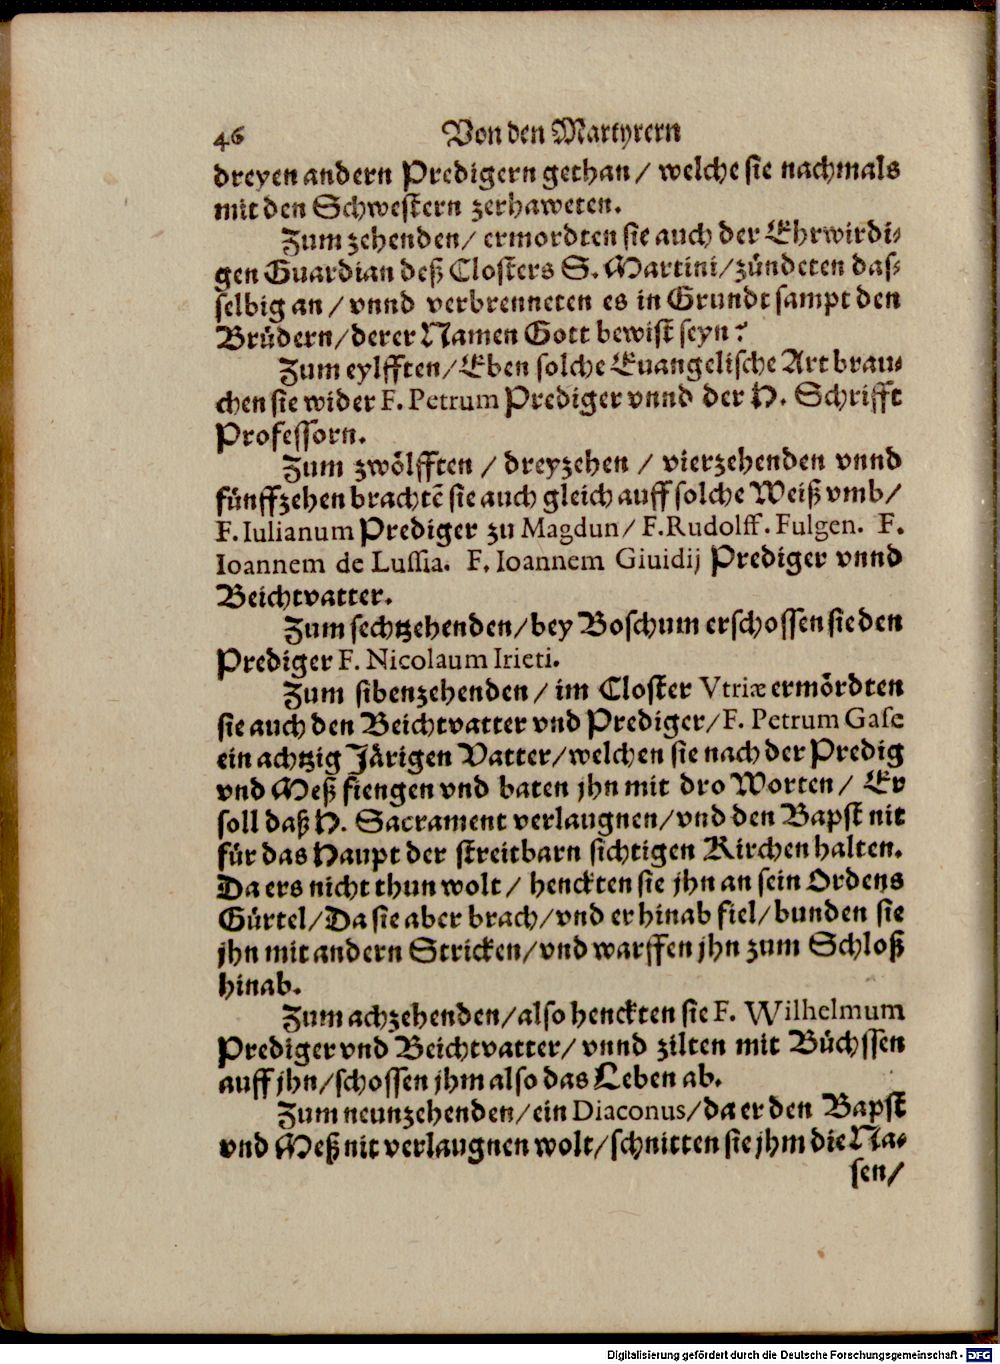 46 Von den Martyrern
dreyen andern Predigern gethan / welche sie nachmals
mit den Schwestern zerhaweten.
Zum zehenden / ermordten sie auch der Ehrwirdi-
gen Guardian deß Closters S. Martini / zündeten das-
selbig an / vnnd verbrenneten es in Grundt sampt den
Brüdern / derer Namen Gott bewist seyn?
Zum eylfften / Eben solche Euangelische Art brau-
chen sie wider F. Petrum Prediger vnnd der H. Schrifft
Professorn.
Zum zwölfften / dreyzehen / vierzehenden vnnd
fünffzehen brachtẽ sie auch gleich auff solche Weiß vmb /
F. Iulianum Prediger zu Magdun / F. Rudolff. Fulgen. F.
Ioannem de Lussia. F. Ioannem Giuidij Prediger vnnd
Beichtvatter.
Zum sechtzehenden / bey Boschum erschossen sie den
Prediger F. Nicolaum Irieti.
Zum sibenzehenden / im Closter Vtriæ ermördten
sie auch den Beichtvatter vnd Prediger / F. Petrum Gase
ein achtzig Järigen Vatter / welchen sie nach der Predig
vnd Meß fiengen vnd baten jhn mit dro Worten / Er
soll daß H. Sacrament verlaugnen / vnd den Bapst nit
für das Haupt der streitbarn sichtigen Kirchen halten.
Da ers nicht thun wolt / henckten sie jhn an sein Ordens
Gürtel / Da sie aber brach / vnd er hinab fiel / bunden sie
jhn mit andern Stricken / vnd warffen jhn zum Schloß
hinab.
Zum achzehenden / also henckten sie F. Wilhelmum
Prediger vnd Beichtvatter / vnnd zilten mit Büchssen
auff jhn / schossen jhm also das Leben ab.
Zum neunzehenden / ein Diaconus / da er den Bapst
vnd Meß nit verlaugnen wolt / schnitten sie jhm die Na-
sen /
Digitalisierung gefördert durch die Deutsche Forschungsgemeinschaft - DFG